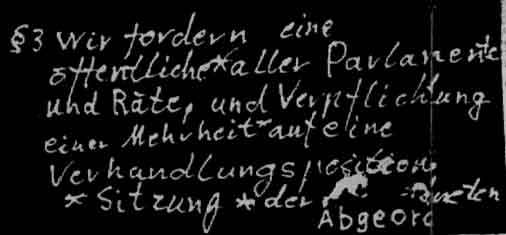 §3 Wir fordern eine
öffentliche* aller Parlamente
und Räte, und Verpflichtung
einer Mehrheit* auf eine
Verhandlungsposition
* Sitzung * der
Abgeord